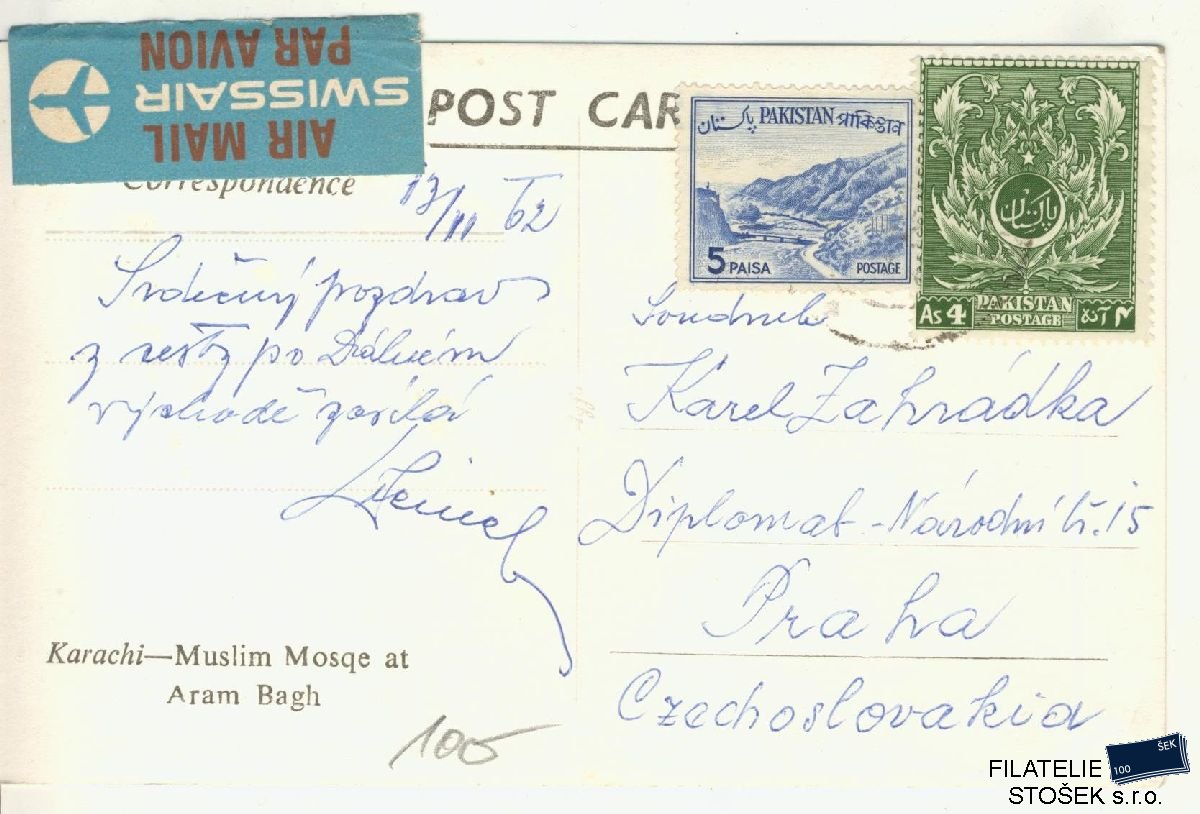 AIR MAIL
SWISSAIR
PAR AVION
POST CAR
Correspondence
13/11 62
Srdečný pozdrav
z cesty po Dálném
východě zasílá
پاکستان PAKISTAN পাকিস্তান
5 PAISA POSTAGE
پاکستان
As 4 PAKISTAN POSTAGE ۴ آنہ
Soudruh
Karel Zahrádka
Diplomat - Národní tř. 15
Praha
Czechoslovakia
Karachi—Muslim Mosqe at
Aram Bagh
100
FILATELIE
STOŠEK s.r.o.
100 ŠEK